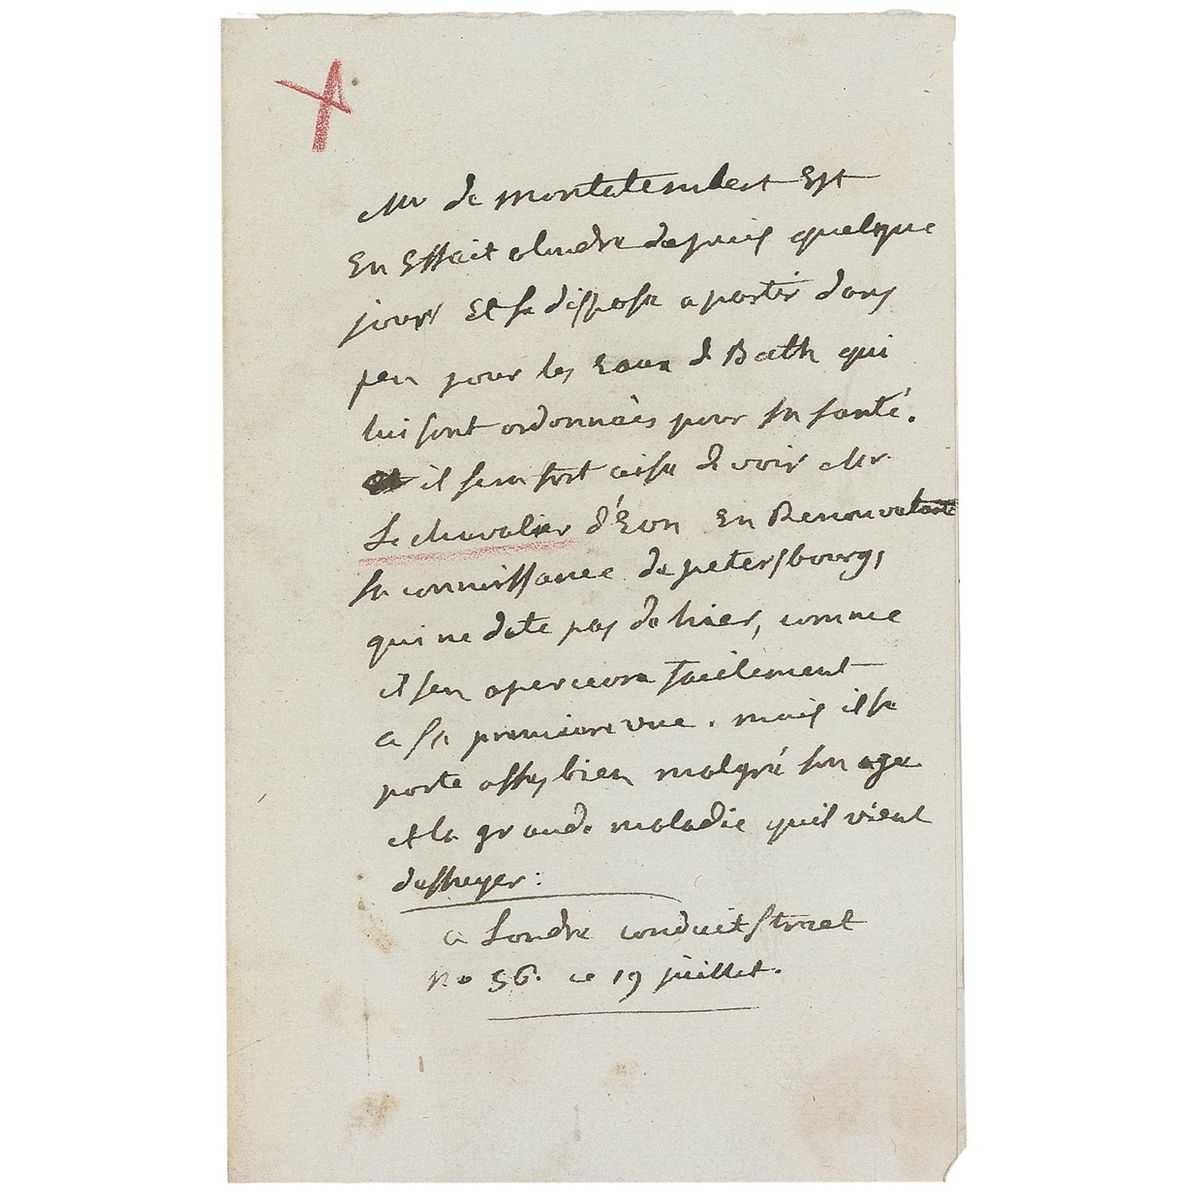 Mr de montalembert Est
En Effait alondre depuis quelque
jours Et se dispose a partir dans
peu pour les Eaux de Bath qui
lui sont ordonnées pour sa santé.
il sera fort aise de voir Mr
Le chevalier d'Eon En Renouvelant
sa connoissance de petersbourg,
qui ne date pas de hier, comme
il sen apercevra facilement
a sa premiere vue. mais il se
porte assez bien malgré son age
et la grande maladie quil vient
dessuyer:
a Londre conduit street
No 36. ce 19 juillet.